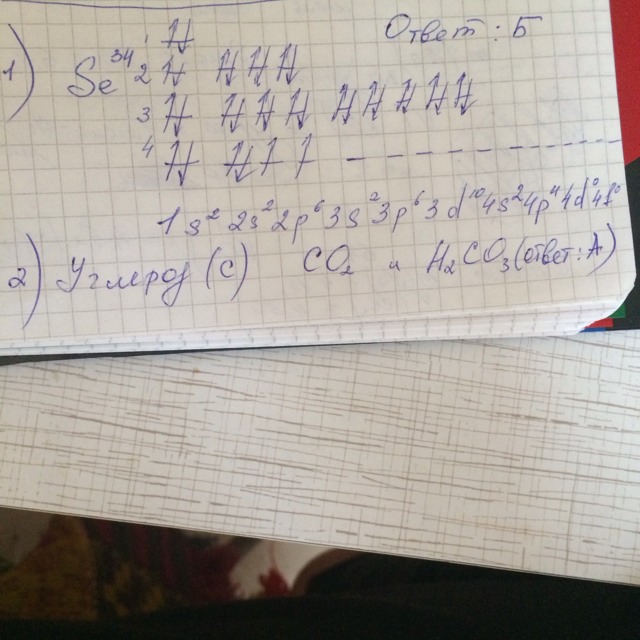 Ответ: Б
1) Se³⁴
1
2
3
4
1s² 2s² 2p⁶ 3s² 3p⁶ 3d¹⁰ 4s² 4p⁴ 4d⁰ 4f⁰
2) Углерод (C) CO₂ и H₂CO₃ (ответ: А)